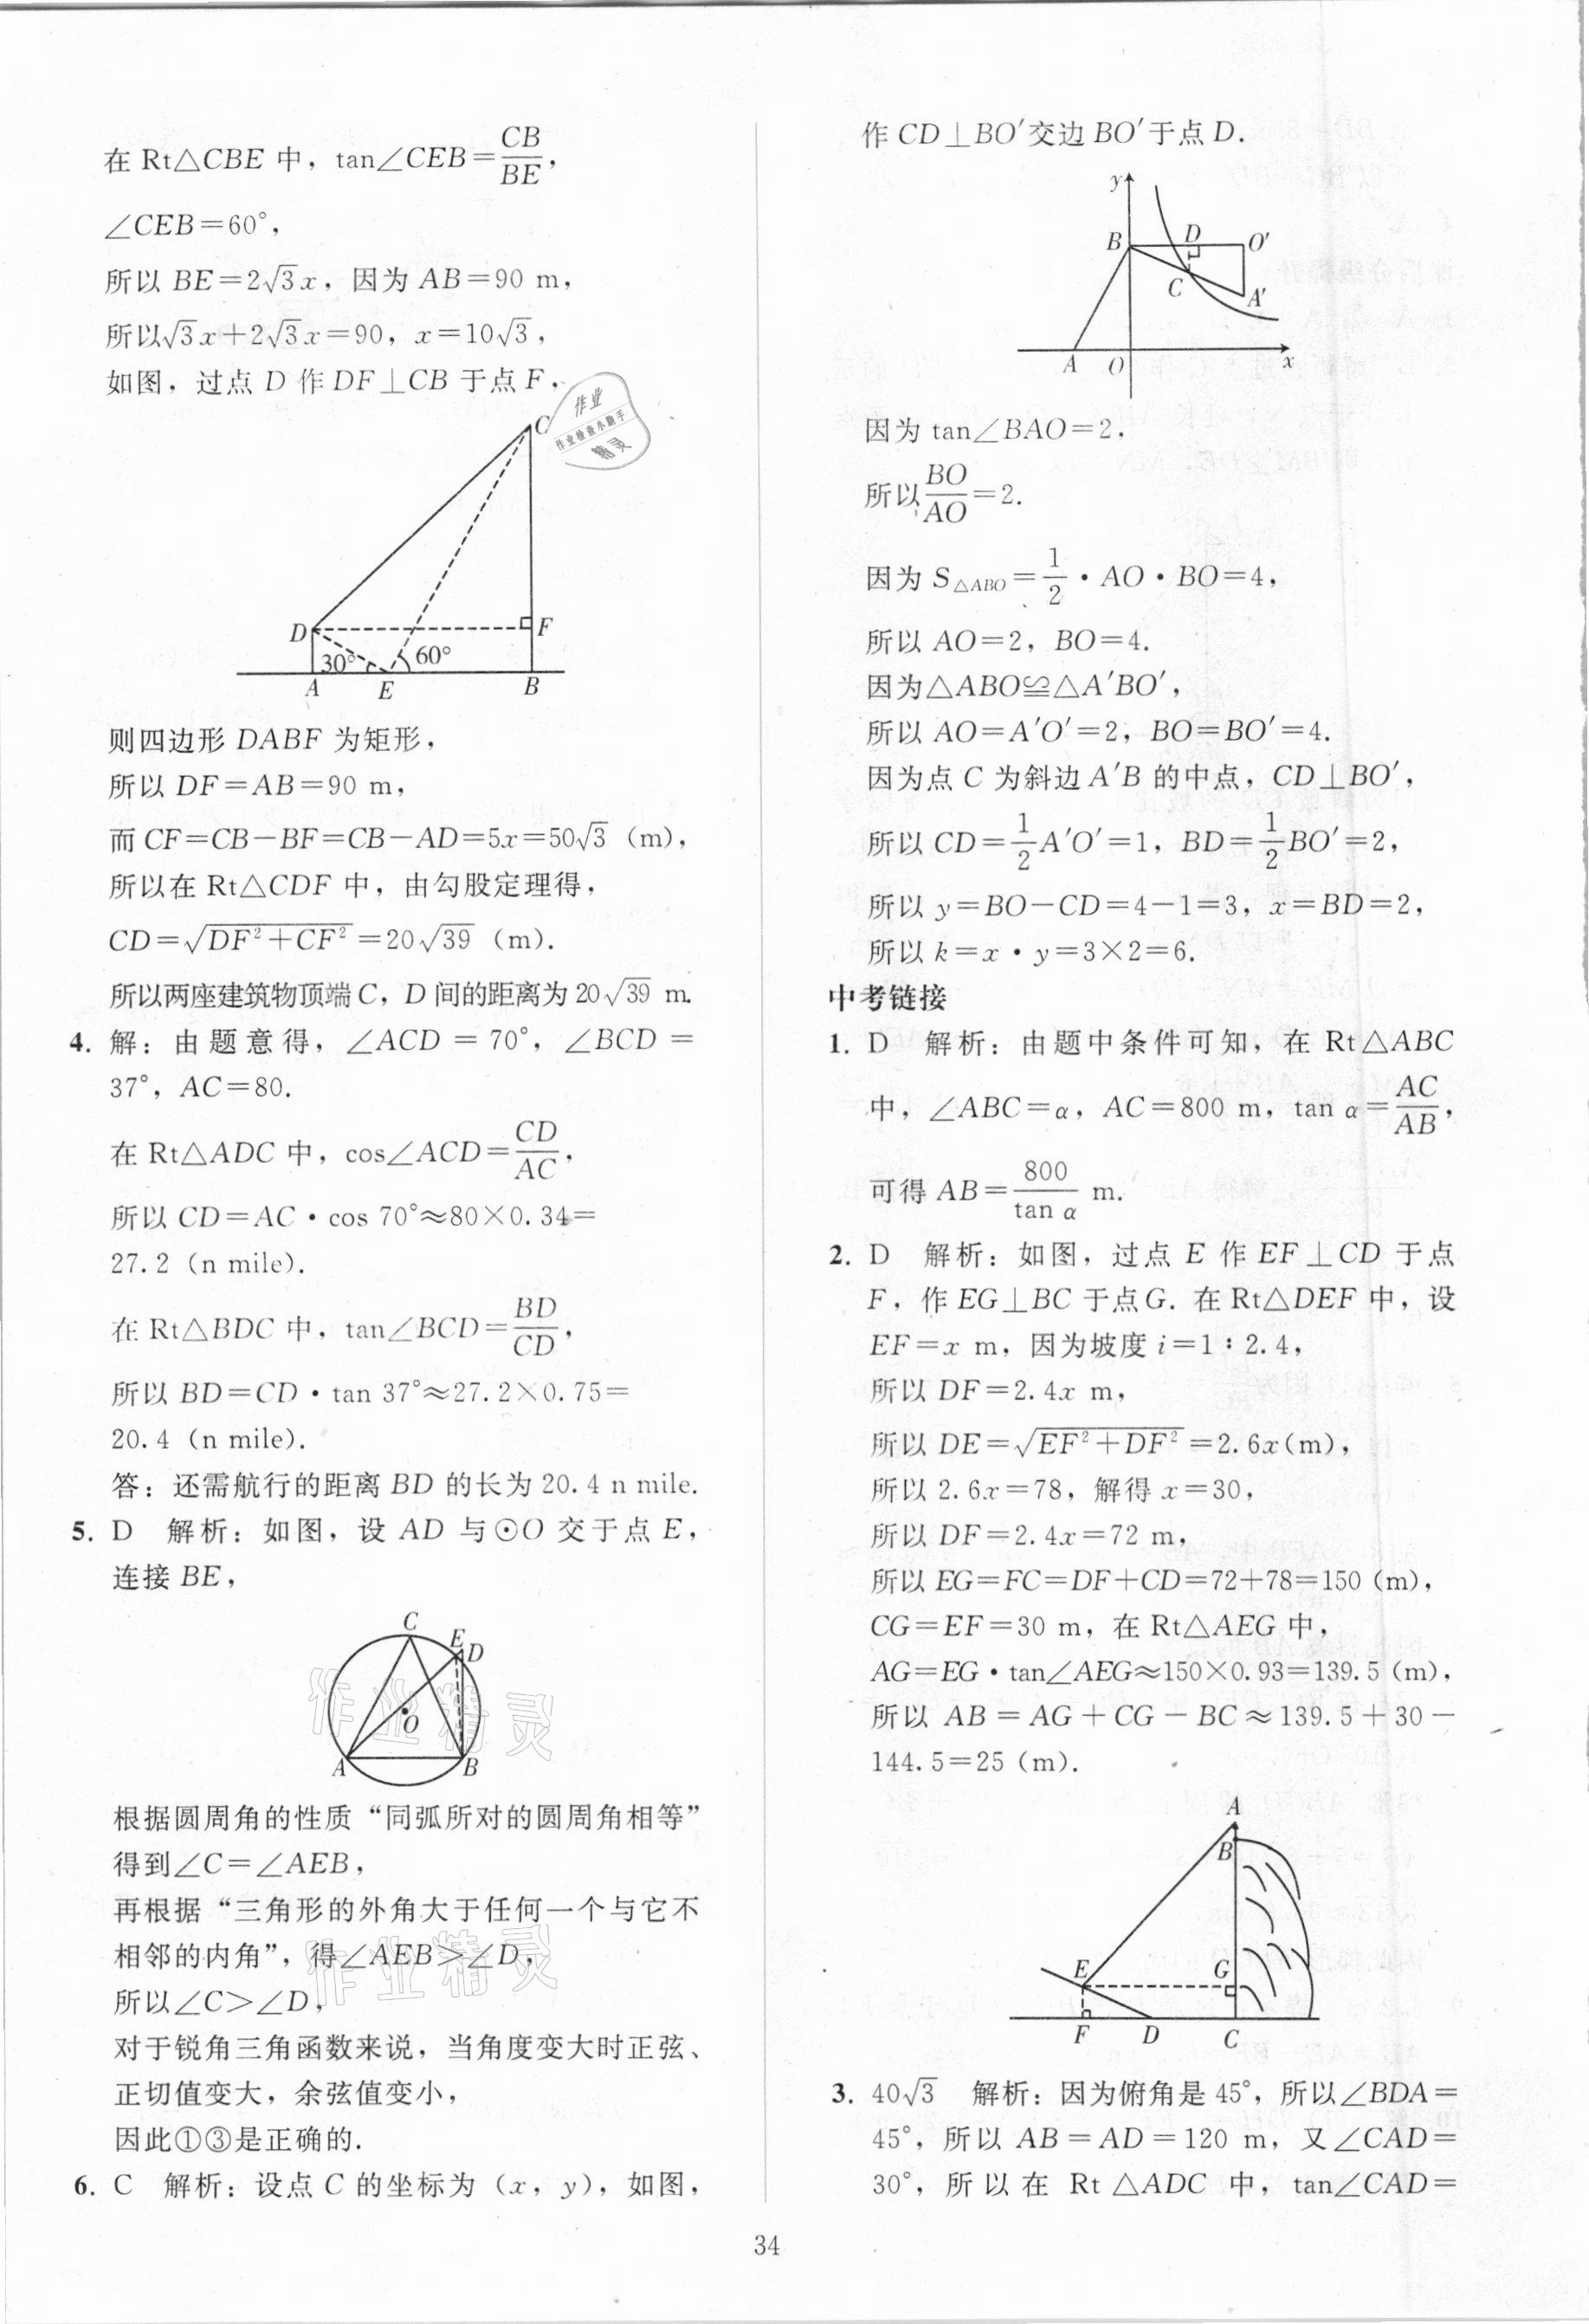 在 Rt△CBE 中，tan∠CEB=CB/BE，
∠CEB=60°，
所以 BE=2√3x，因为 AB=90 m，
所以√3x+2√3x=90，x=10√3，
如图，过点 D 作 DF⊥CB 于点 F，
C
作业
作业检查小助手
精灵
D F
30° 60°
A E B
则四边形 DABF 为矩形，
所以 DF=AB=90 m，
而 CF=CB−BF=CB−AD=5x=50√3 (m)，
所以在 Rt△CDF 中，由勾股定理得，
CD=√(DF²+CF²)=20√39 (m).
所以两座建筑物顶端C，D 间的距离为 20√39 m.
4. 解：由题意得，∠ACD=70°，∠BCD=
37°，AC=80.
在 Rt△ADC 中，cos∠ACD=CD/AC，
所以 CD=AC·cos 70°≈80×0.34=
27.2 (n mile).
在 Rt△BDC 中，tan∠BCD=BD/CD，
所以 BD=CD·tan 37°≈27.2×0.75=
20.4 (n mile).
答：还需航行的距离 BD 的长为 20.4 n mile.
5. D 解析：如图，设 AD 与⊙O 交于点 E，
连接 BE，
C
E
D
O
A B
作业精灵
根据圆周角的性质“同弧所对的圆周角相等”
得到∠C=∠AEB，
再根据“三角形的外角大于任何一个与它不
相邻的内角”，得∠AEB>∠D，
作业精灵
所以∠C>∠D，
对于锐角三角函数来说，当角度变大时正弦、
正切值变大，余弦值变小，
因此①③是正确的.
6. C 解析：设点 C 的坐标为 (x，y)，如图，
作 CD⊥BO′交边 BO′于点 D.
y
B D O′
C A′
A O x
因为 tan∠BAO=2，
所以BO/AO=2.
因为 S△ABO=1/2·AO·BO=4，
所以 AO=2，BO=4.
因为△ABO≌△A′BO′，
所以 AO=A′O′=2，BO=BO′=4.
因为点 C 为斜边 A′B 的中点，CD⊥BO′，
所以 CD=1/2A′O′=1，BD=1/2BO′=2，
所以 y=BO−CD=4−1=3，x=BD=2，
所以 k=x·y=3×2=6.
中考链接
1. D 解析：由题中条件可知，在 Rt△ABC
中，∠ABC=α，AC=800 m，tan α=AC/AB，
可得 AB=800/tan α m.
2. D 解析：如图，过点 E 作 EF⊥CD 于点
F，作 EG⊥BC 于点G. 在 Rt△DEF 中，设
EF=x m，因为坡度 i=1∶2.4，
所以 DF=2.4x m，
所以 DE=√(EF²+DF²)=2.6x(m)，
所以 2.6x=78，解得 x=30，
所以 DF=2.4x=72 m，
所以 EG=FC=DF+CD=72+78=150 (m)，
CG=EF=30 m，在 Rt△AEG 中，
AG=EG·tan∠AEG≈150×0.93=139.5 (m)，
所以 AB=AG+CG−BC≈139.5+30−
144.5=25 (m).
A
B
E G
F D C
3. 40√3 解析：因为俯角是 45°，所以∠BDA=
45°，所以 AB=AD=120 m，又∠CAD=
30°，所以在 Rt△ADC 中，tan∠CAD=
34